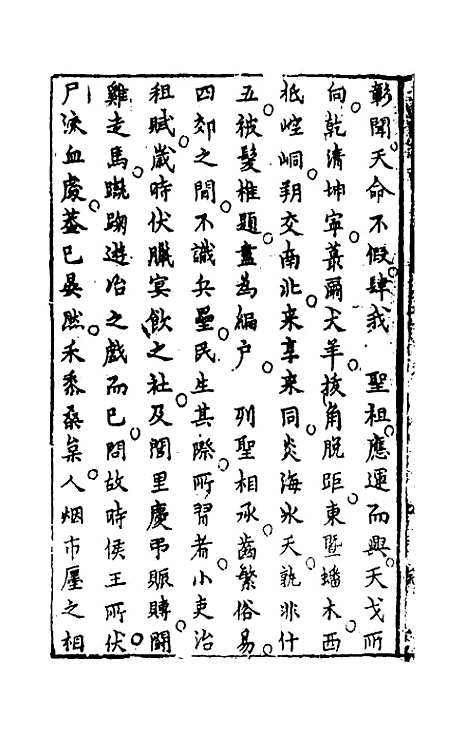 彰聞天命不假肆我　聖祖應運而興天戈所
向乾清坤寧蕞爾犬羊拔角脫距東暨蟠木西
抵崆峒朔交南北來享來同炎海氷天孰非什
五被髮椎題盡為編戶　列聖相承齒繁俗易
四郊之間不識兵壘民生其際所習者小吏治
租賦歲時伏臘宴飲之社及閭里慶弔賑賻鬪
雞走馬蹴踘遊冶之戲而已問故時侯王所伏
尸流血處蓋已晏然禾黍桑枲人烟市廛之相